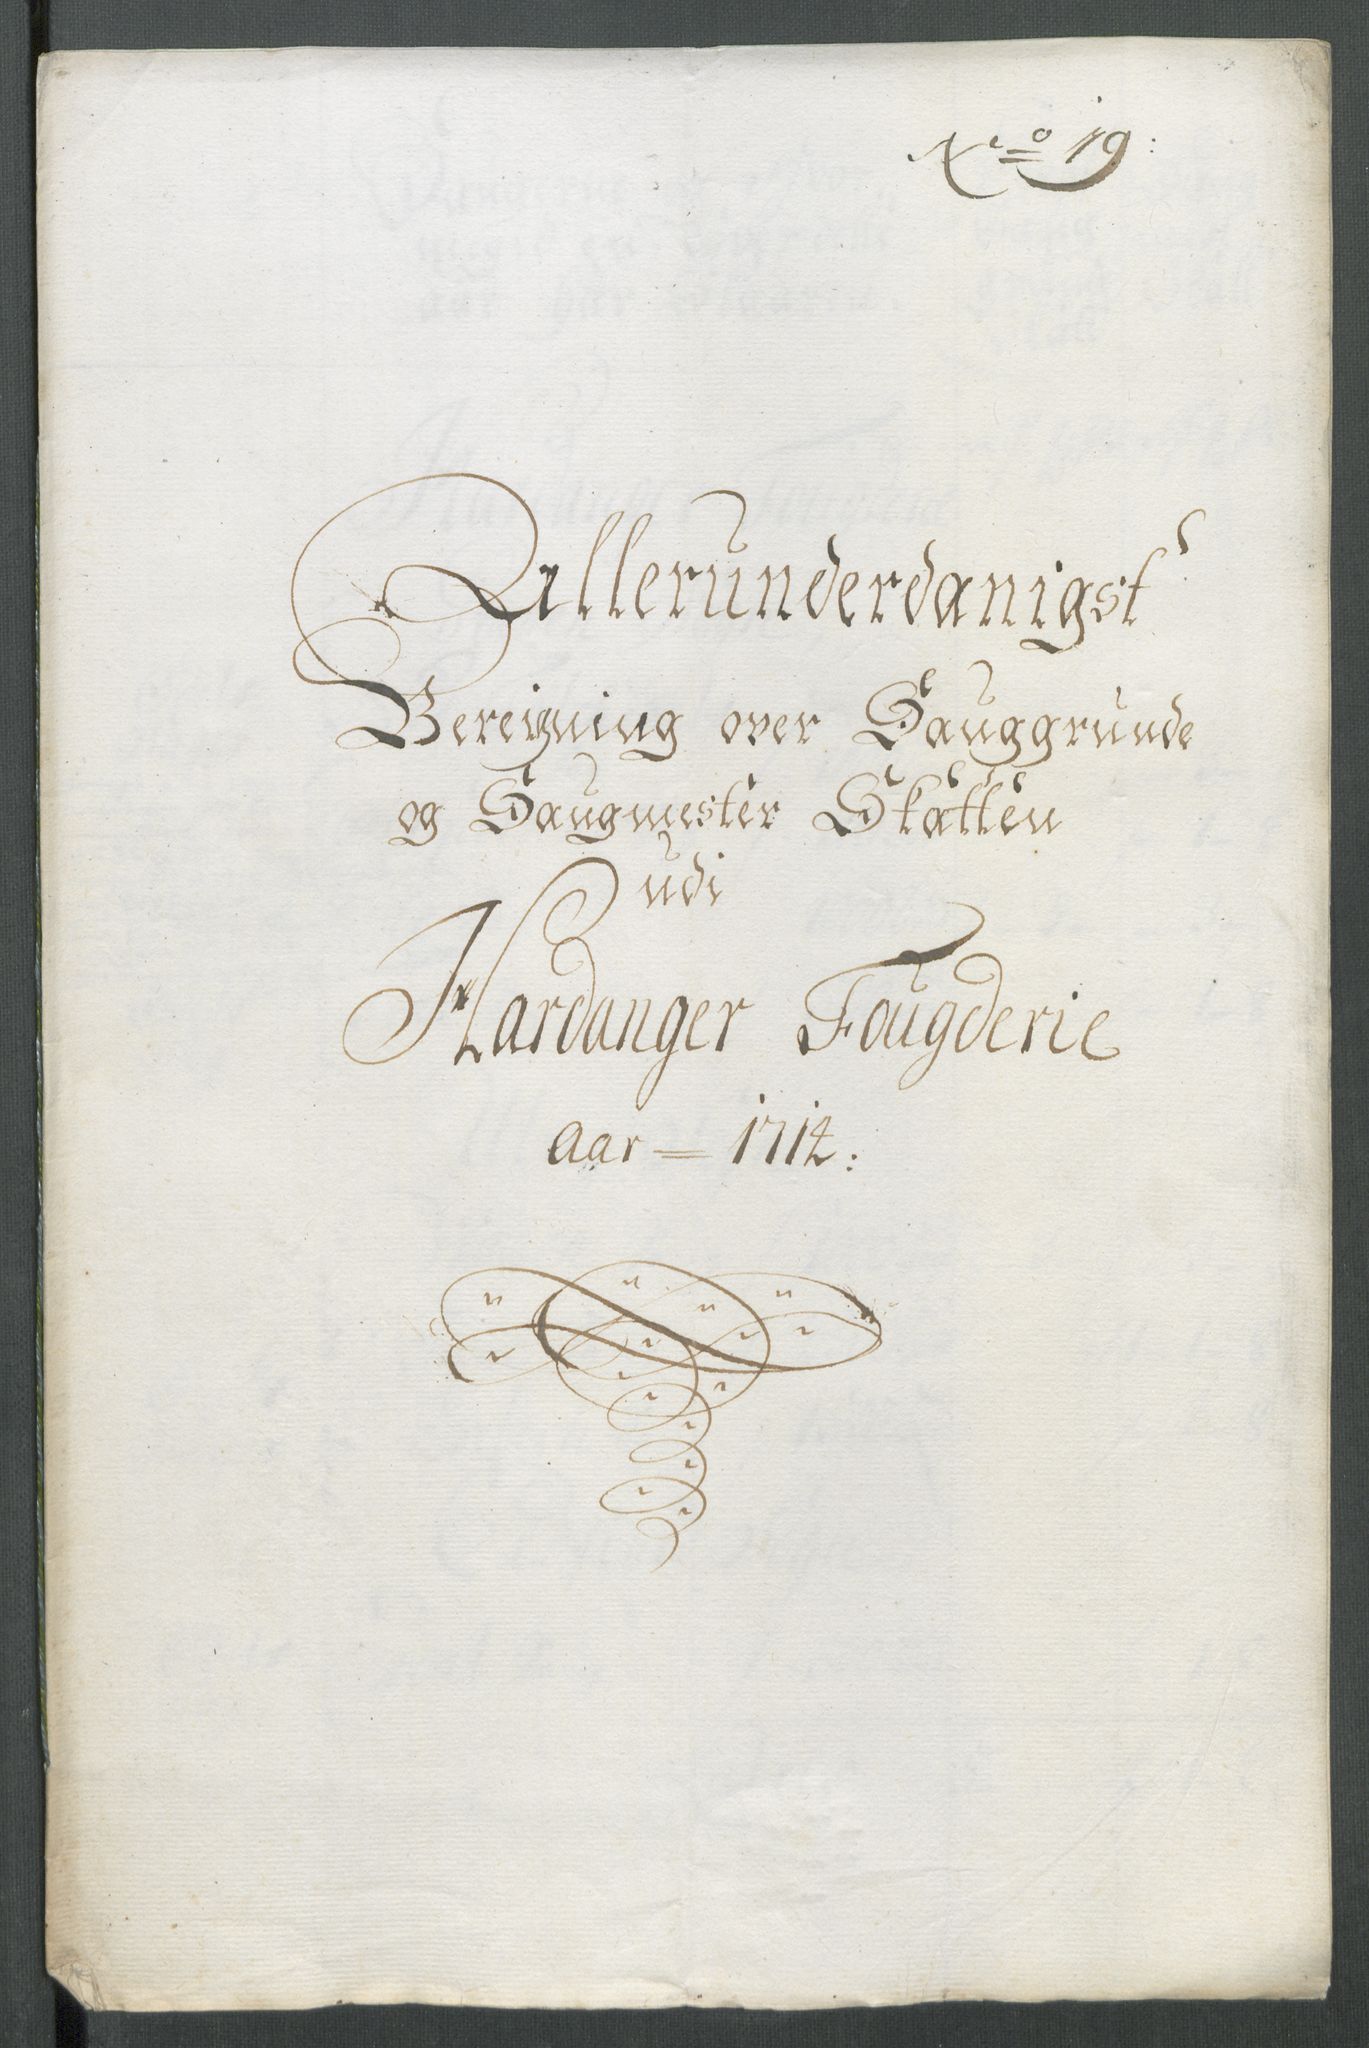 No 19:
Allerunderdanigst
Beregning over Sauggrunde
og Saugmester Skatten
udi
Hardanger Fougderie
Aar = 1714: